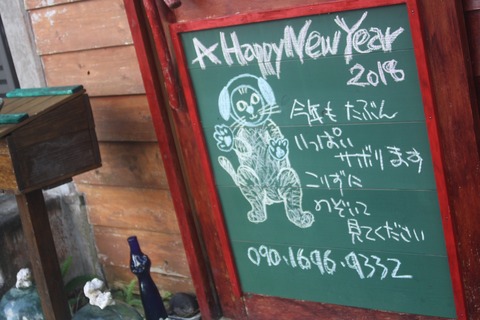 A Happy New Year
2018
今年も たぶん
いっぱい
サボります
こりずに
のぞいて
見てください
090.1696.9332